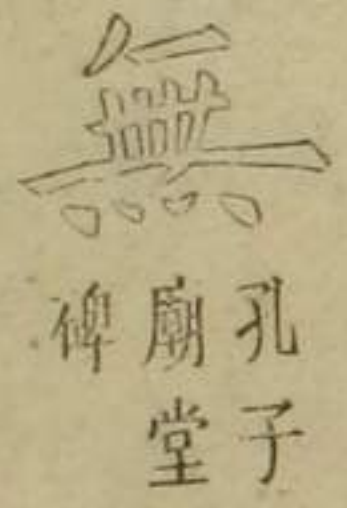 無
孔子
廟堂
碑